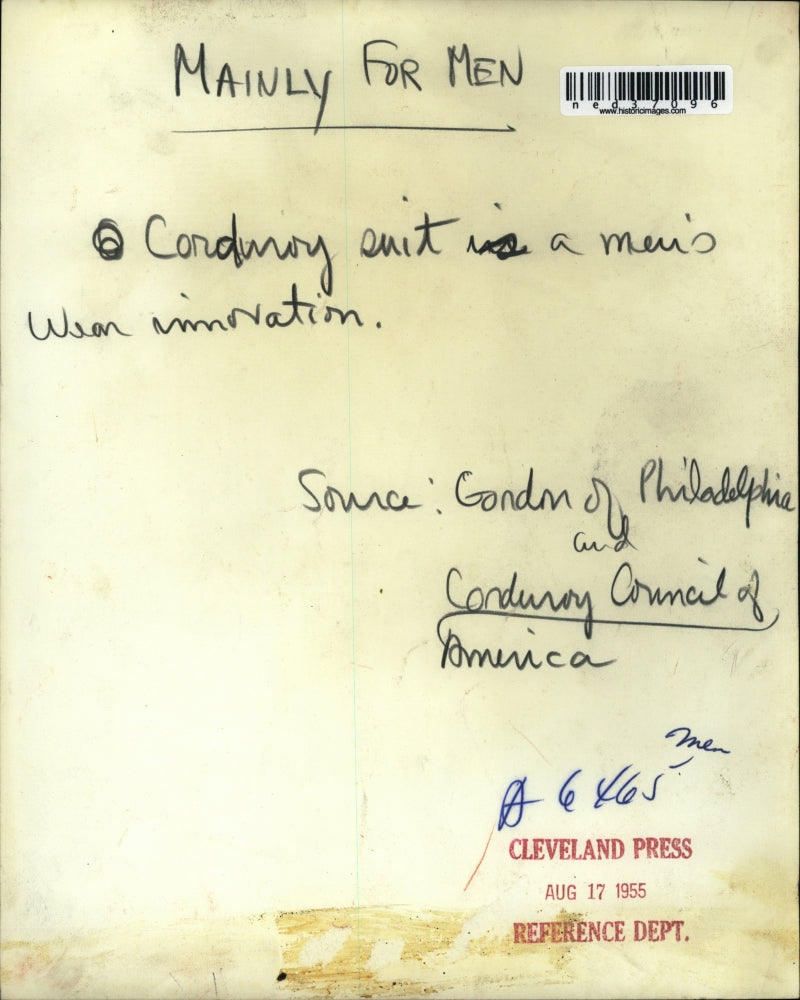 MAINLY FOR MEN
ned37096
www.historicimages.com
Corduroy suit is a men's
wear innovation.
Source: Gordon of Philadelphia
and
Corduroy Council of
America
men
A 6465
CLEVELAND PRESS
AUG 17 1955
REFERENCE DEPT.